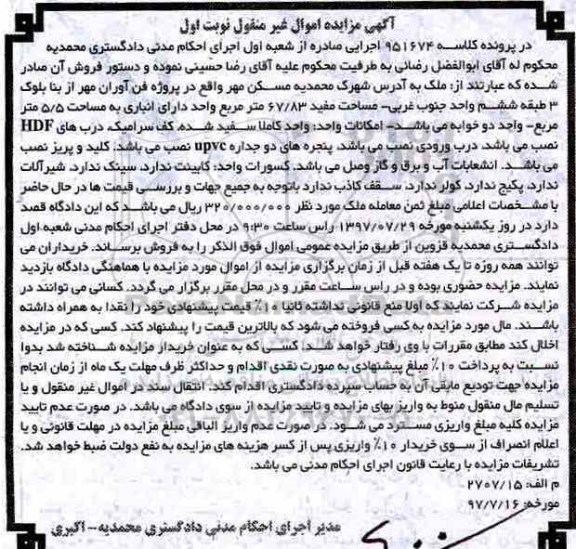 آگهی مزایده اموال غیر منقول نوبت اول
در پرونده کلاسه ۹۵۱۶۷۴ اجرایی صادره از شعبه اول اجرای احکام مدنی دادگستری محمدیه
محکوم له آقای ابوالفضل رضائی به طرفیت محکوم علیه آقای رضا حسینی نموده و دستور فروش آن صادر
شده که عبارتند از: ملک به آدرس شهرک محمدیه مسکن مهر واقع در پروژه فن آوران مهر از بنا بلوک
۳ طبقه ششم واحد جنوب غربی- مساحت مفید ۶۷/۸۳ متر مربع واحد دارای انباری به مساحت ۵/۵ متر
مربع- واحد دو خوابه می باشد- امکانات واحد: واحد کاملا سفید شده، کف سرامیک، درب های HDF
نصب می باشد. درب ورودی نصب می باشد. پنجره های دو جداره upvc نصب می باشد. کلید و پریز نصب
می باشد. انشعابات آب و برق و گاز وصل می باشد. کسورات واحد: کابینت ندارد، سینک ندارد، شیرآلات
ندارد، پکیج ندارد، کولر ندارد، سقف کاذب ندارد باتوجه به جمیع جهات و بررسی قیمت ها در حال حاضر
با مشخصات اعلامی مبلغ ثمن معامله ملک مورد نظر ۳۲۰/۰۰۰/۰۰۰ ریال می باشد که این دادگاه قصد
دارد در روز یکشنبه مورخه ۱۳۹۷/۰۷/۲۹ راس ساعت ۹:۳۰ در محل دفتر اجرای احکام مدنی شعبه اول
دادگستری محمدیه قزوین از طریق مزایده عمومی اموال فوق الذکر را به فروش برساند. خریداران می
توانند همه روزه تا یک هفته قبل از زمان برگزاری مزایده از اموال مورد مزایده با هماهنگی دادگاه بازدید
نمایند. مزایده حضوری بوده و در راس ساعت مقرر و در محل مقرر برگزار می گردد. کسانی می توانند در
مزایده شرکت نمایند که اولا منع قانونی نداشته ثانیا ۱۰٪ قیمت پیشنهادی خود را نقدا به همراه داشته
باشند. مال مورد مزایده به کسی فروخته می شود که بالاترین قیمت را پیشنهاد کند. کسی که در مزایده
اخلال کند مطابق مقررات با وی رفتار خواهد شد. کسی که به عنوان خریدار مزایده شناخته شد بدوا
نسبت به پرداخت ۱۰٪ مبلغ پیشنهادی به صورت نقدی اقدام و حداکثر ظرف مهلت یک ماه از زمان انجام
مزایده جهت تودیع مابقی آن به حساب سپرده دادگستری اقدام کند. انتقال سند در اموال غیر منقول و یا
تسلیم مال منقول منوط به واریز بهای مزایده و تایید مزایده از سوی دادگاه می باشد. در صورت عدم تایید
مزایده کلیه مبلغ واریزی مسترد می شود. در صورت عدم واریز الباقی مبلغ مزایده در مهلت قانونی و یا
اعلام انصراف از سوی خریدار ۱۰٪ واریزی پس از کسر هزینه های مزایده به نفع دولت ضبط خواهد شد.
تشریفات مزایده با رعایت قانون اجرای احکام مدنی می باشد.
م الف: ۲۷۰۷/۱۵
مورخه: ۹۷/۷/۱۶
مدیر اجرای احکام مدنی دادگستری محمدیه- اکبری